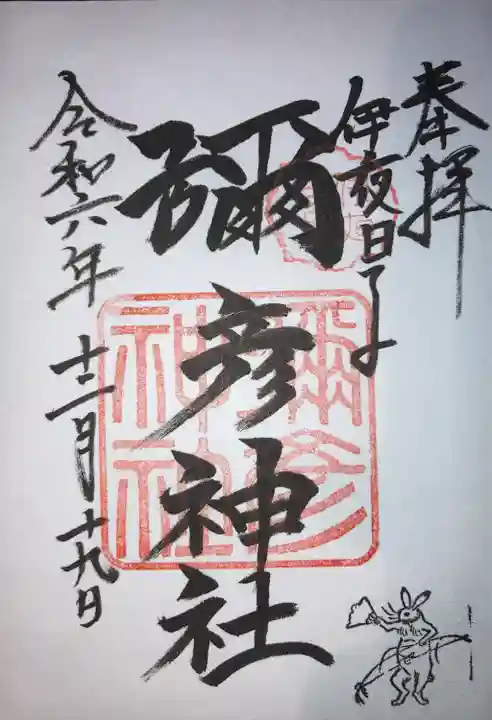 奉拝
伊夜日子
彌彦神社
彌彦神社
令和六年 十二月十九日